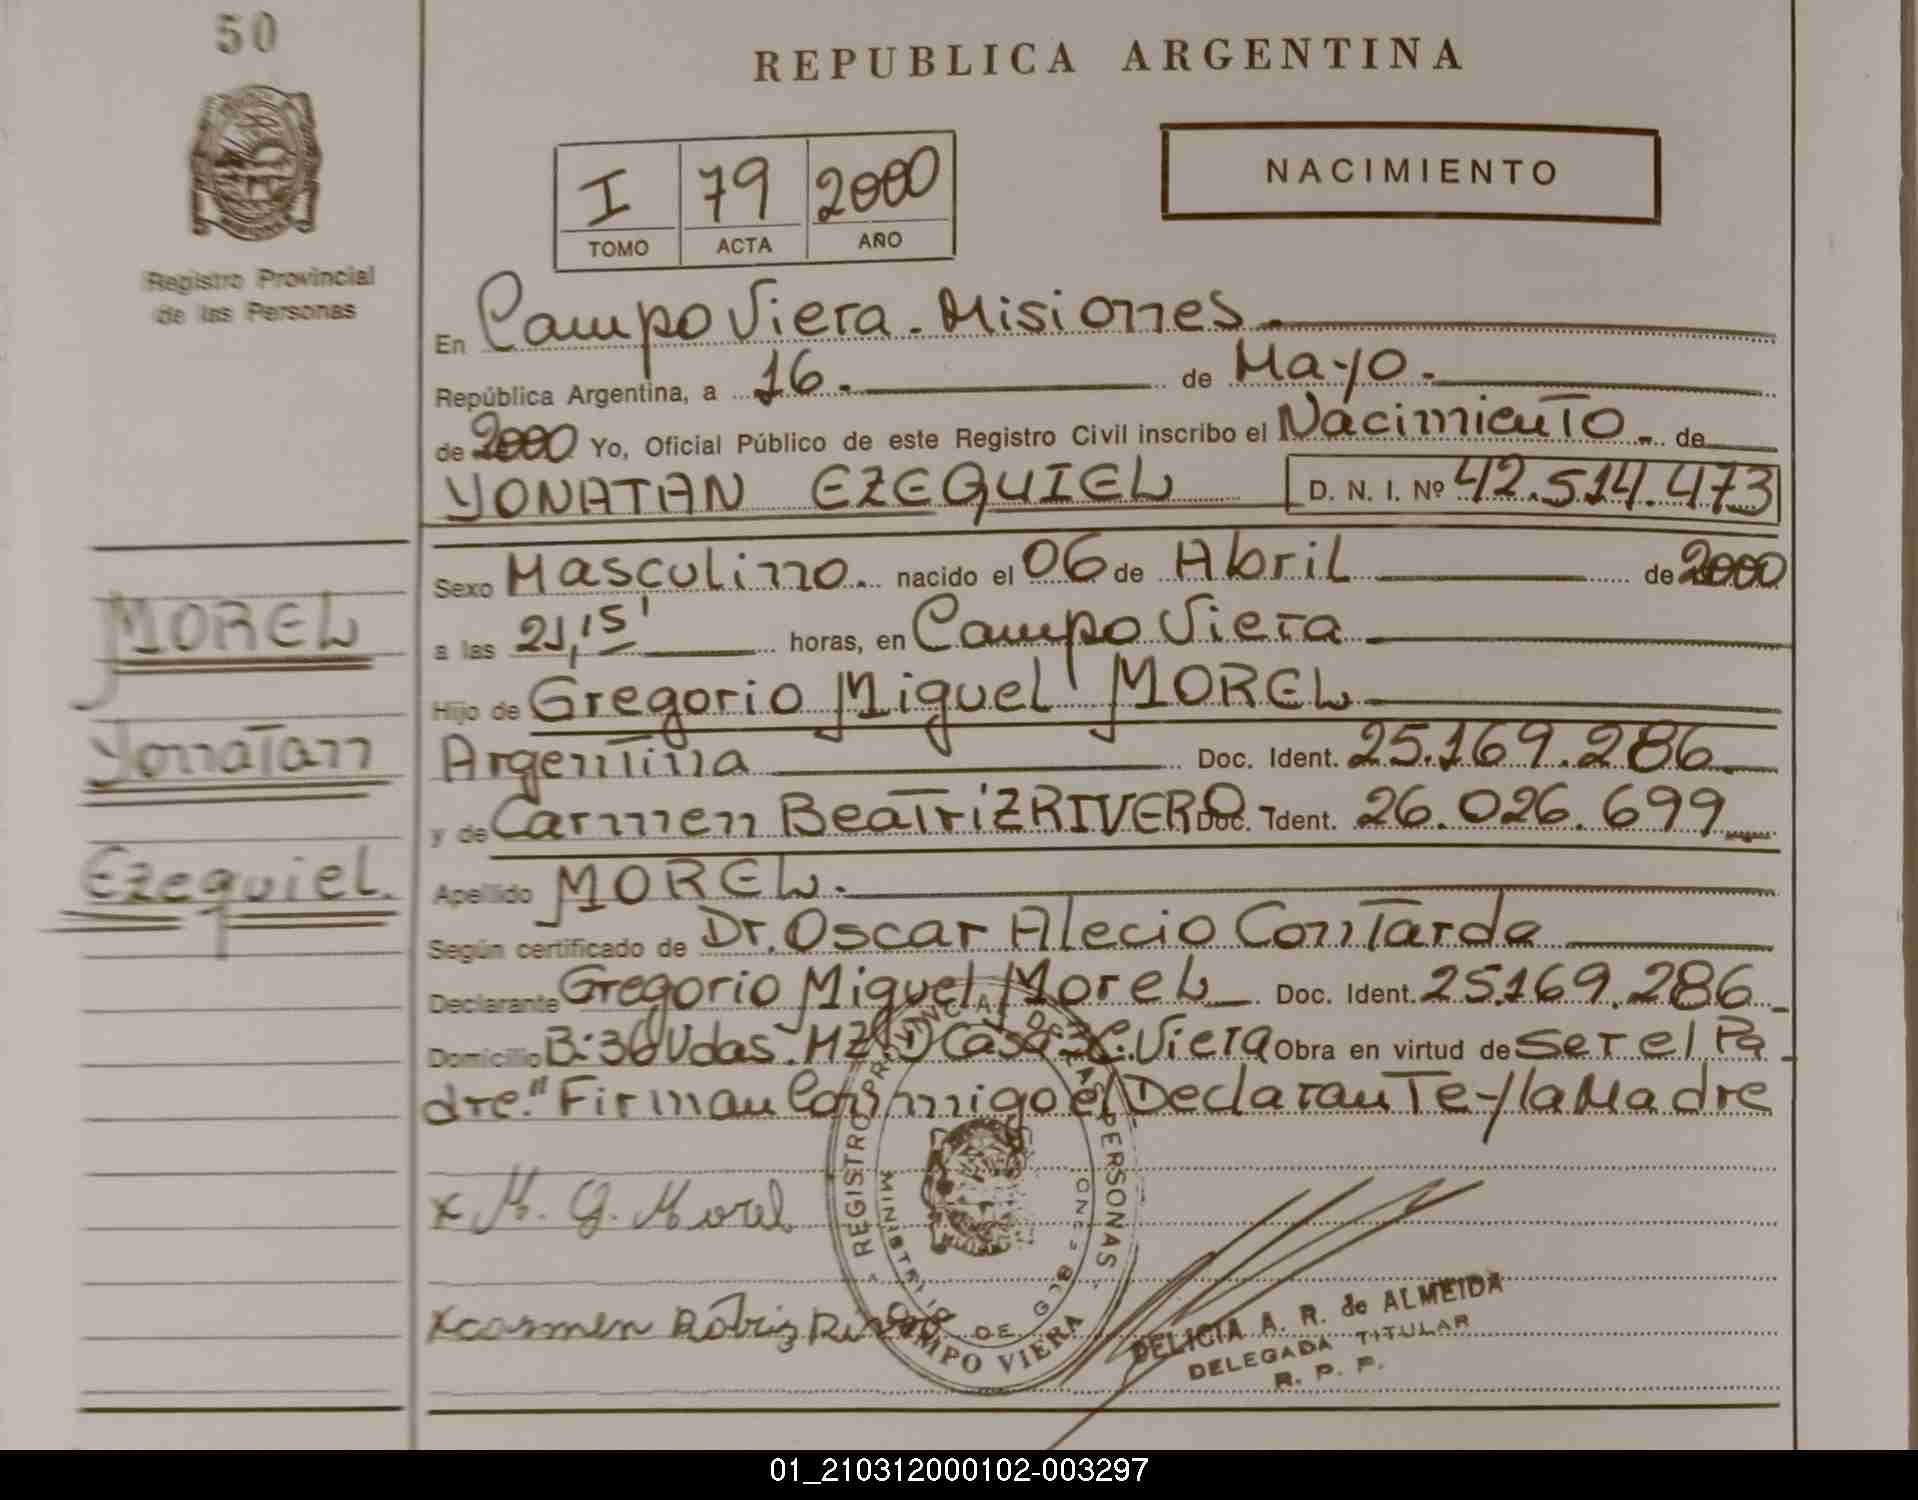 50
REPUBLICA ARGENTINA
NACIMIENTO
I 79 2000
TOMO ACTA AÑO
Registro Provincial
de las Personas
En Campo Viera. Misiones.
República Argentina, a 16. de Mayo.
de 2000 Yo, Oficial Público de este Registro Civil inscribo el Nacimiento de
YONATAN EZEQUIEL D. N. I. Nº 42.514.473
Sexo Masculino. nacido el 06 de Abril de 2000
MOREL
a las 21,15' horas, en Campo Viera
Hijo de Gregorio Miguel MOREL
Yonatan
Argentina Doc. Ident. 25.169.286
y de Carmen Beatriz RIVERO Doc. Ident. 26.026.699
Ezequiel.
Apellido MOREL.
Según certificado de Dr. Oscar Alecio Contarda
Declarante Gregorio Miguel Morel Doc. Ident. 25.169.286
Domicilio B: 30 Vdas. MZ. D Casa C. Viera Obra en virtud de ser el Pa
dre." Firman Conmigo el Declarante y la Madre
x M. G. Morel
x carmen
REGISTRO PROVINCIAL DE LAS PERSONAS
CAMPO VIERA
DELICIA A. R. de ALMEIDA
DELEGADA TITULAR
R. P. P.
01_210312000102-003297